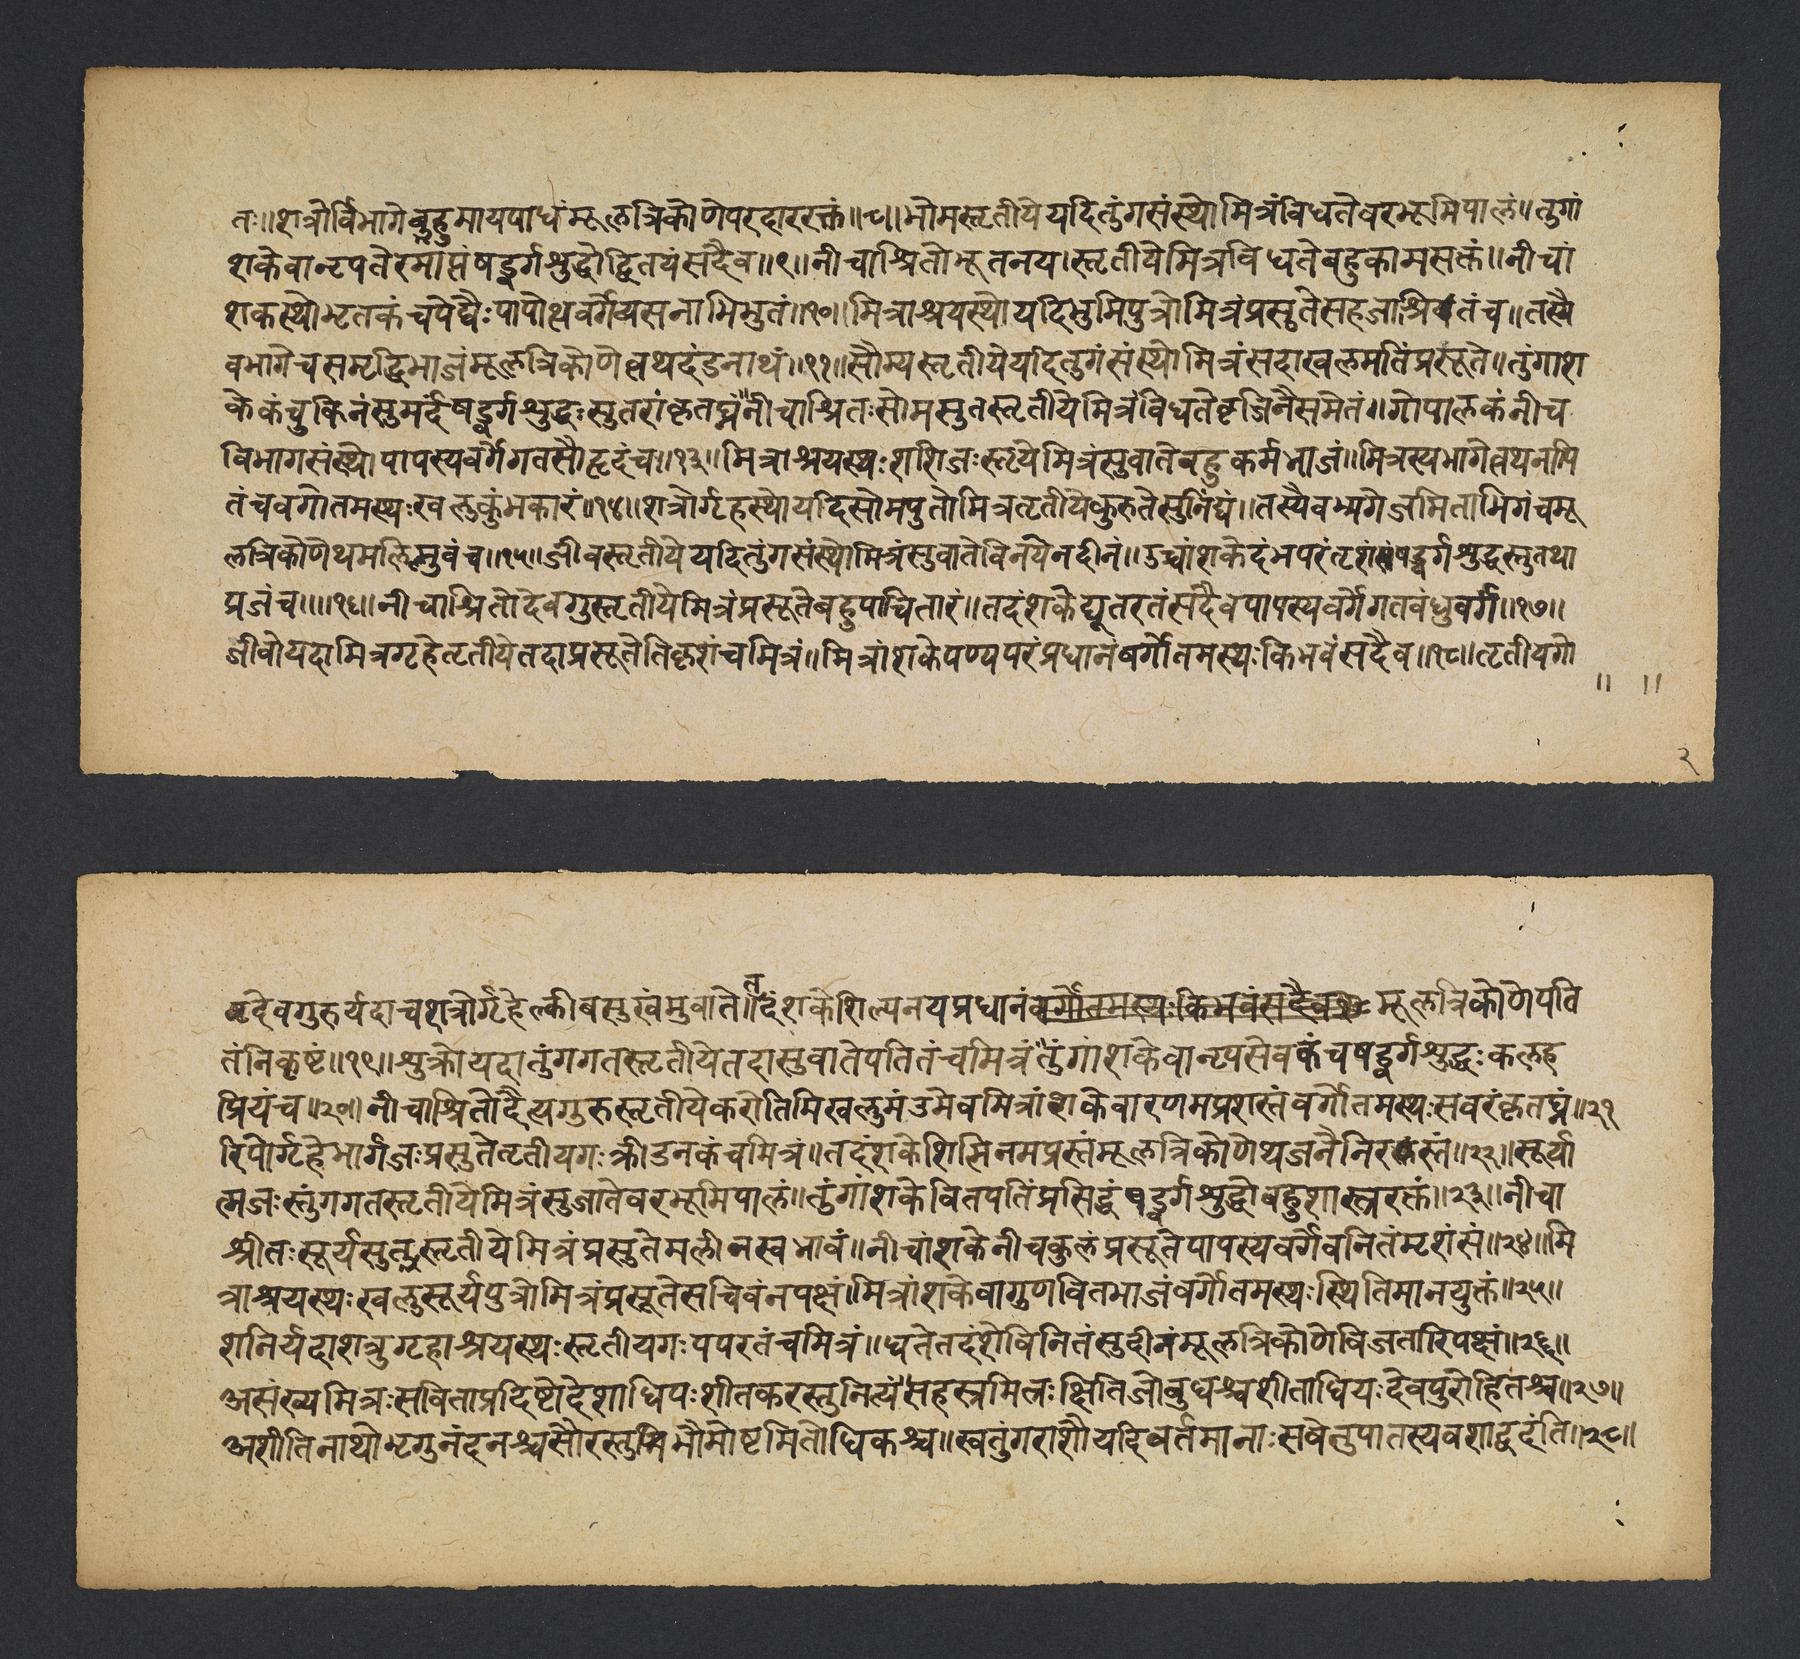 तः॥शत्रोर्विभागेबुहुमायपाढ्यंमूलत्रिकोणेपरहाररक्तं॥८॥भौमस्तृतीयेयदितुंगसंस्थोमित्रंविधतेवरभूमिपालं॥तुगां
शकेवानृपतेरमांप्तंषड्वर्गश्रुद्धोद्वितयंसदैव॥९॥नीचाश्रितोभूतनय।स्तृतीयेमित्रविधतेबहुकामसक्तं॥नीचां
शकस्थोभृतकंचपेद्यैःपापोत्थवर्गेव्यसनाभिभुतं॥१०॥मित्राश्रयस्थोयदिभुमिपुत्रोमित्रंप्रसुतेसहजाश्रितंच॥तस्यै
वभागेचसमृद्धिभाजंमूलत्रिकोणेत्वथदंडनाथं॥११॥सौम्यस्तृतीयेयदितुगंसंस्थोमित्रंसदाखलमतिंप्रसूते॥तुंगाश
केकंचुकिनंसुमर्दंषड्वर्गश्रुद्धःसुतरांकृतघ्नं॥नीचाश्रितःसोमसुतस्तृतीयेमित्रंविधतेवृजिनैसमेतं॥गोपालकंनीच
विभागसंस्थोपापस्यवर्गेगतसौहृदंच॥१३॥मित्राश्रयस्थःशशिजःस्तृयेमित्रंसुवातेबहुकर्मभाजं॥मित्रस्यभागेत्वथनपि
तंचवगोतमस्थःखलुकुंभकारं॥१४॥शत्रोर्गृहस्थोयदिसोमपुतोमित्रतृतीयेकुरुतेसुनिंद्यं॥तस्यैवभ्यगेजमिताभिगंचमू
लत्रिकोणेथमलिस्तुवंच॥१५॥जीवस्तृतीयेयदितुंगसंस्थोमित्रंसुवातेविनयेनदीनं॥उच्चांशकेदंभपरंतृशंसंषड्वर्गश्रुद्धस्तुतथा
प्रजंच॥॥१६॥नीचाश्रितोदेवगुस्तृतीयेमित्रंप्रसूतेबहुपाचितारं॥तदंशकेद्यूतरतंसदैवपापस्यवर्गेगतवंधुवर्गं॥१७॥
जीवोयदामित्रगृहेतृतीयेतदाप्रसूतेतिकृशंचमित्रं॥मित्रांशकेपण्यपरंप्रधानंवर्गोतमस्थःकिभवंसदैव॥१८॥तृतीयगो
॥ ॥
२
वदेवगुरुर्यदाचशत्रोर्गृहेल्कीबसुखंमुवाते॥तदंशकेशिल्पनयप्रधानंवर्गोतमस्थःकिभवंसदैव मूलत्रिकोणेपति
तंनिकृष्टं॥१९॥श्रुक्रोयदातुंगगतस्तृतीयेतदासुवातेपतितंचमित्रं॥तुंगांशकेवानृपसेवकंचषड्वर्गश्रुद्धःकलह
प्रियंच॥२०॥नीचाश्रितोदैत्यगुरुस्तृतीयेकरोतिमिखलुमंउमेवमित्रांशकेवारणमप्रशस्तंवर्गोतमस्थःसवरंकृतघ्नं॥२१
रिपोर्गृहेभार्गजःप्रसुतेतृतीयगःक्रीडनकंचमित्रं॥तदंशकेशिलिनमप्रस्तंमूलत्रिकोणेथजनैनिरस्तं॥२२॥सूर्या
त्मजःस्तुंगगतस्तृतीयेमित्रंसुजातेवरभूमिपालं॥तुंगांशकेवितपतिंप्रसिद्धंषड्वर्गश्रुद्धोबहुशास्त्ररक्तं॥२३॥नीचा
श्रीतःसूर्यसुतस्तृतीयेमित्रंप्रसुतेमलीनस्वभावं॥नीचांशकेनीचकुलंप्रसूतेपापस्यवर्गेवनितंमृशंसं॥२४॥मि
त्राश्रयस्थःखलुसूर्यपुत्रोमित्रंप्रसूतेसचिवंनपक्षं॥मित्रांशकेवागुणवितभाजंवर्गोतमस्थःस्थितिमानयुक्तं॥२५॥
शनिर्यदाशत्रुगृहाश्रयस्थःस्तृतीयगःपपरतंचमित्रं॥धतेतदंशेविनितंसुदीनंमूलत्रिकोणेविजतारिपक्षं॥२६॥
असंख्यमित्रःसविताप्रदिष्टोदेशाधिपःशीतकरस्तुनित्यं॥सहस्त्रमित्रःक्षितिजोबुधश्चशीताधियःदेवपुरोहितश्च॥२७॥
अशीतिनाथोभृगुनंदनश्चसौरस्तुभौमोष्टमितोधिकश्च॥स्वतुंगराशौयदिवर्तमानाःसषेतुपातस्यवशाद्वदंति॥२८॥